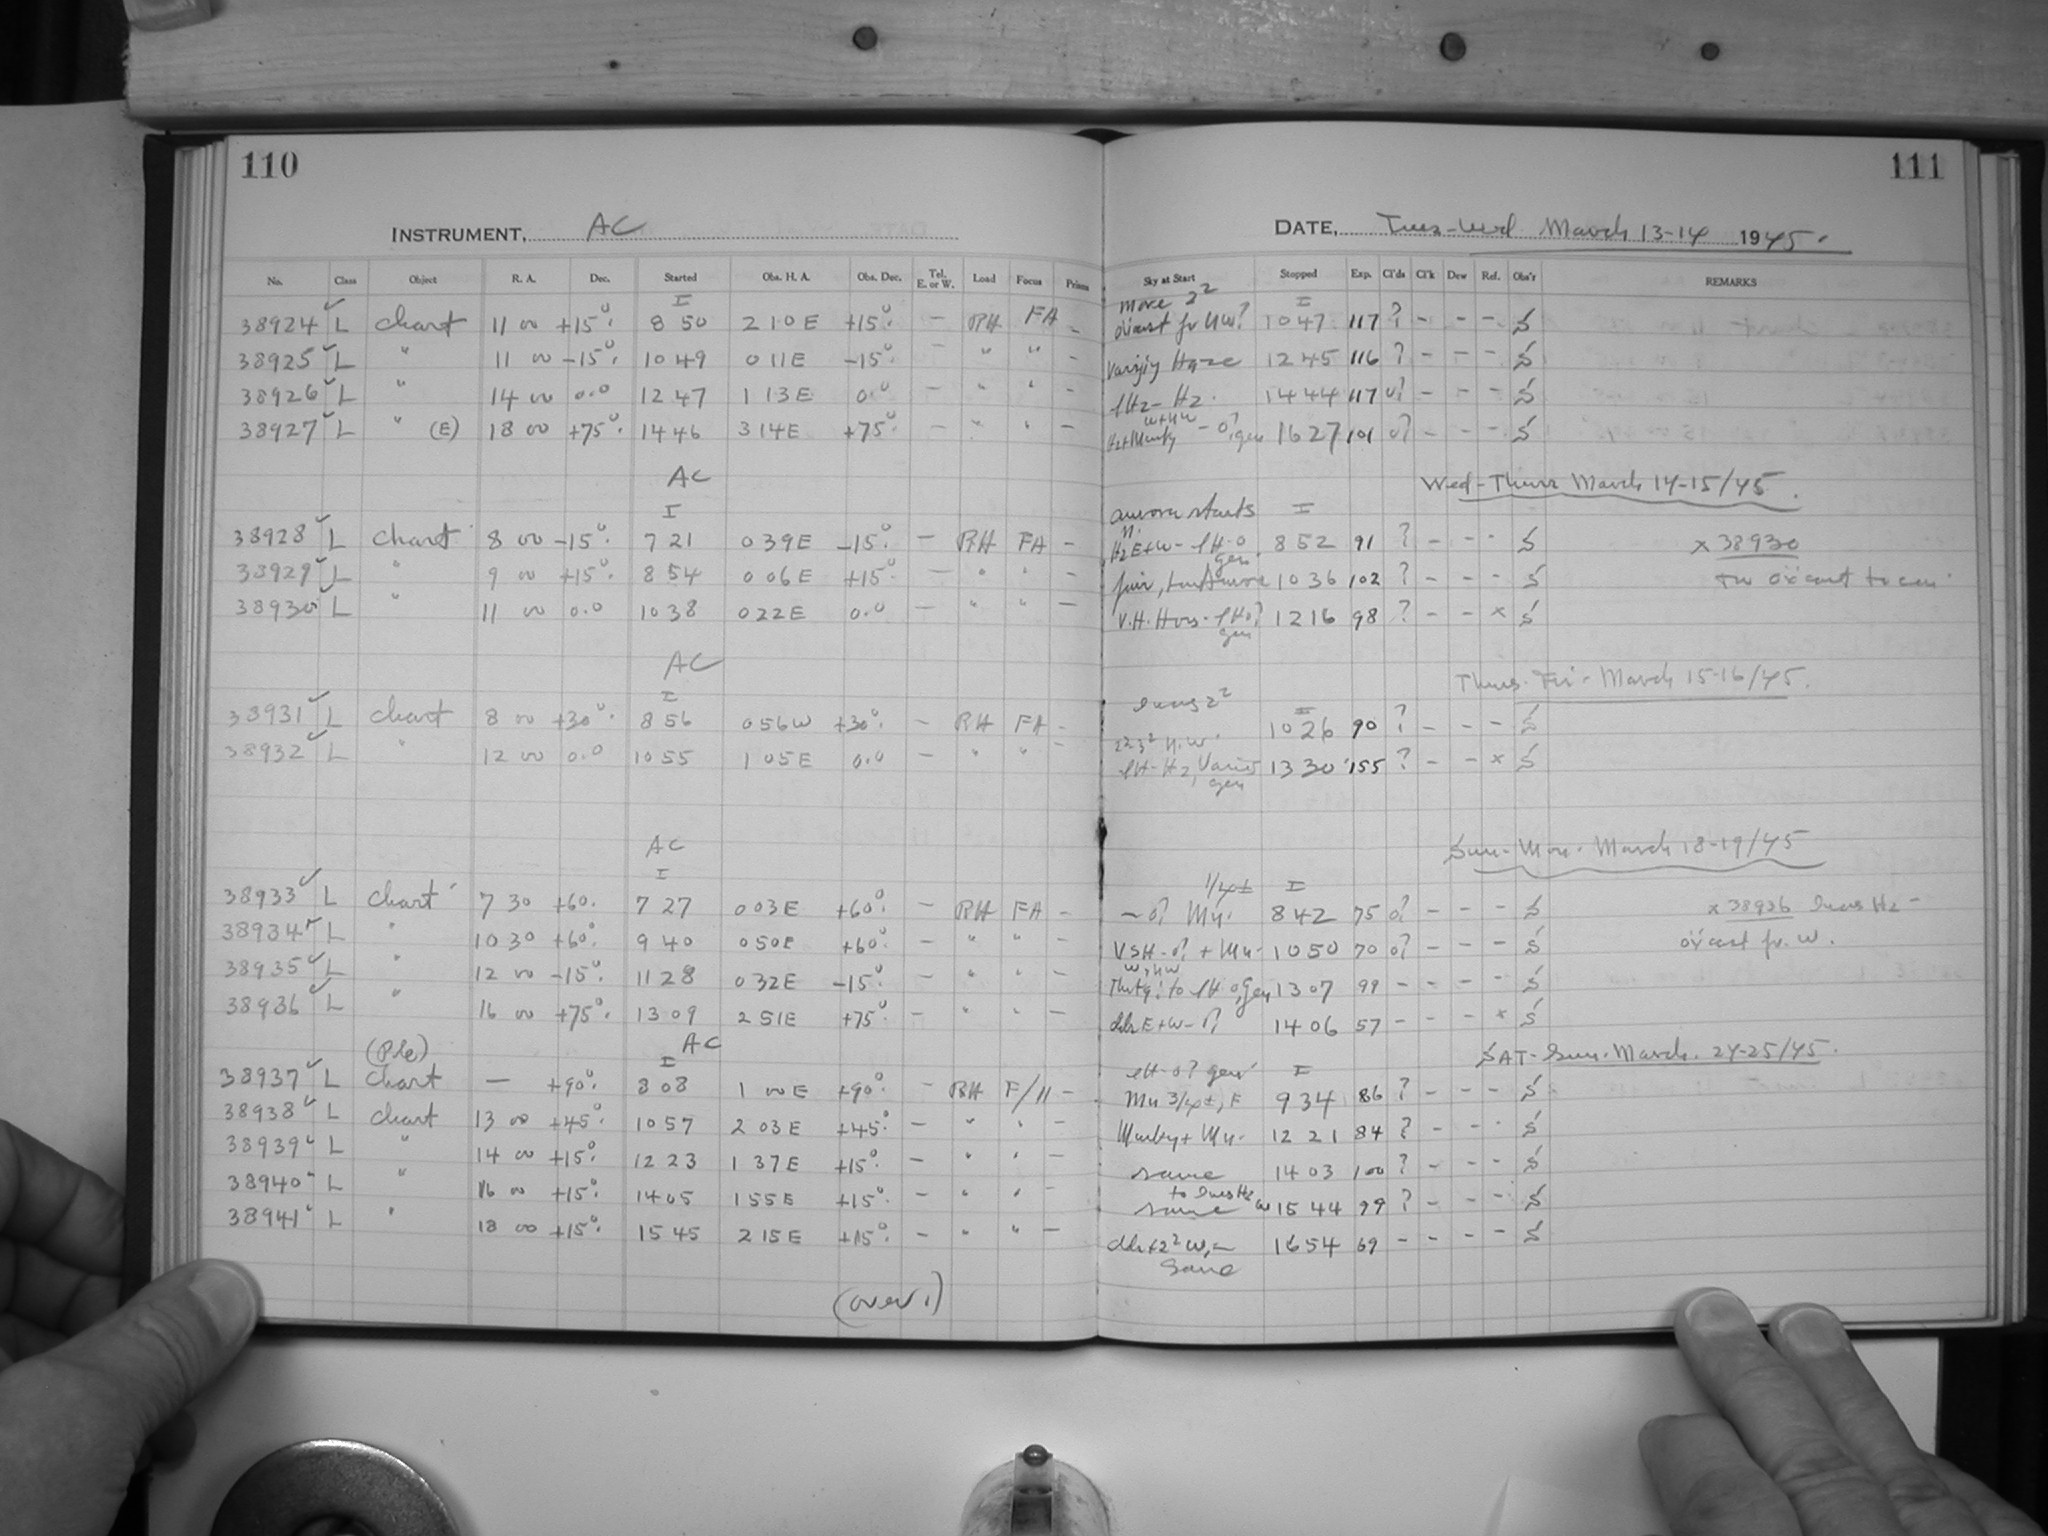 110
111
INSTRUMENT, AC
DATE, Tues-Wed March 13-14 1945.
No. Class Object R. A. Dec. Started Obs. H. A. Obs. Dec. Tel. E. or W. Load Focus Prism Sky at Start Stopped Exp. Cl'ds Cl'k Dew Ref. Obs'r REMARKS
I more 2² I
38924 ✓ L Chart 11 00 +15° 8 50 2 10 E +15° – RH FA – 1047 117 ? – – – S
38925 ✓ L " 11 00 -15° 10 49 0 11 E -15° – " " – Haze 1245 116 ? – – – S
38926 ✓ L " 14 00 0.0 12 47 1 13 E 0.0 – " " – 1444 117 0? – – – S
38927 ✓ L " (E) 18 00 +75° 14 46 3 14 E +75° – " " – 1627 101 0? – – – S
AC Wed-Thurs March 14-15/45.
I aurora starts I
38928 ✓ L Chart 8 00 -15° 7 21 0 39 E -15° – RH FA – N. 852 91 ? – – – S x 38930
38929 ✓ L " 9 00 +15° 8 54 0 06 E +15° – " " – 1036 102 ? – – – S
38930 ✓ L " 11 00 0.0 10 38 0 22 E 0.0 – " " – 1216 98 ? – – x S
AC Thurs-Fri- March 15-16/45.
I I
38931 ✓ L Chart 8 00 +30° 8 56 0 56 W +30° – RH FA – 1026 90 ? – – – S
38932 ✓ L " 12 00 0.0 10 55 1 05 E 0.0 – " " – 1330 155 ? – – x S
AC Sun-Mon- March 18-19/45
I 1/4± I
38933 ✓ L Chart 7 30 +60° 7 27 0 03 E +60° – RH FA – – 0? Mn. 842 75 0? – – – S x 38936
38934 ✓ L " 10 30 +60° 9 40 0 50 E +60° – " " – VSH-0? + Mn. 1050 70 0? – – – S
38935 ✓ L " 12 00 -15° 11 28 0 32 E -15° – " " – W, NW 1307 99 – – – – S
38936 ✓ L " 16 00 +75° 13 09 2 51 E +75° – " " – E+W-0? 1406 57 – – – x S
AC SAT-Sun. March. 24-25/45.
(Pole) I I
38937 ✓ L Chart — +90° 8 08 1 00 E +90° – RH F/11 – Mn 3/4±, E 934 86 ? – – – S
38938 ✓ L Chart 13 00 +45° 10 57 2 03 E +45° – " " – Murky + Mn. 1221 84 ? – – – S
38939 ✓ L " 14 00 +15° 12 23 1 37 E +15° – " " – same 1403 100 ? – – – S
38940 ✓ L " 16 00 +15° 14 05 1 55 E +15° – " " – same 1544 99 ? – – – S
38941 ✓ L " 18 00 +15° 15 45 2 15 E +15° – " " – Same 1654 69 – – – – S
(over.)